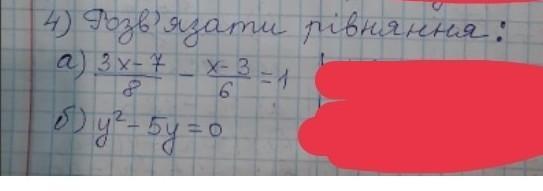 4) Розв'язати рівняння:
а) (3x-7)/8 - (x-3)/6 = 1
б) y² - 5y = 0